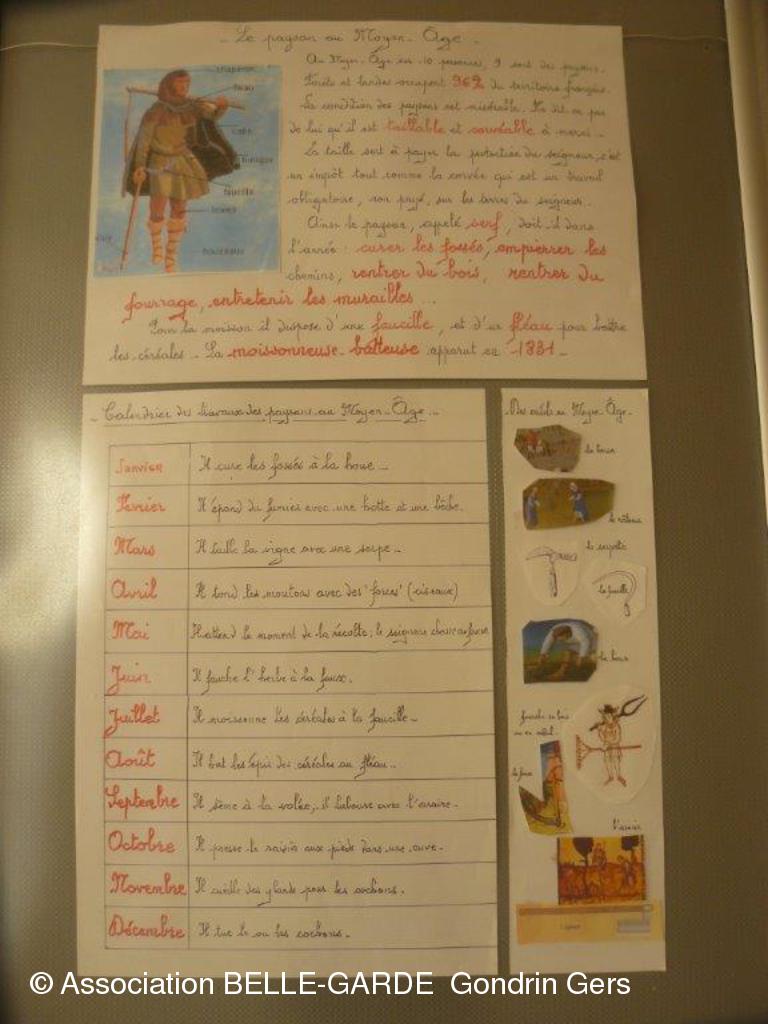 - Le paysan au Moyen-Âge -
Au Moyen-Âge sur 10 personnes, 9 sont des paysans.
Forêts et landes occupent 96% du territoire français.
La condition des paysans est misérable. Ils dit on pas
de lui qu'il est taillable et corvéable à merci -
La taille sert à payer la protection du seigneur, c'est
un impôt tout comme la corvée qui est un travail
obligatoire, non payé, sur les terres du seigneur.
Ainsi le paysan, appelé serf, doit il dans
l'année : curer les fossés, empierrer les
chemins, rentrer du bois, rentrer du
fourrage, entretenir les murailles ...
Pour la moisson il dispose d'une faucille, et d'un fléau pour battre
les céréales - La moissonneuse-batteuse apparut en 1831 -
chaperon
fléau
cape
tunique
faucille
braies
houseaux
- Calendrier des travaux des paysans au Moyen-Âge -
Janvier Il cure les fossés à la houe -
Février Il épand du fumier avec une hotte et une bêche.
Mars Il taille la vigne avec une serpe -
Avril Il tond les moutons avec des "forces" (ciseaux)
Mai Il attend le moment de la récolte ; le seigneur chasse au faucon
Juin Il fauche l'herbe à la faux.
Juillet Il moissonne les céréales à la faucille -
Août Il bat les épis des céréales au fléau -
Septembre Il sème à la volée, il laboure avec l'araire -
Octobre Il presse le raisin aux pieds dans une cuve.
Novembre Il cueille des glands pour les cochons.
Décembre Il tue le ou les cochons.
- Des outils au Moyen-Âge -
le râteau
la serpette
la faucille
la houe
fourche en bois
ou en métal
la faux
l'araire
© Association BELLE-GARDE Gondrin Gers